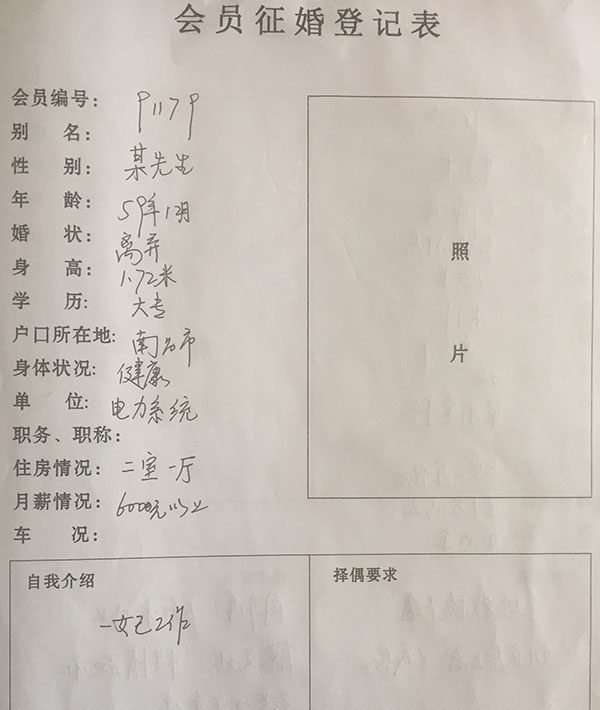 会员征婚登记表
会员编号: 91179
别 名:
性 别: 某先生
年 龄: 59年1月
婚 状: 离弃
身 高: 1.72米
学 历: 大专
户口所在地: 南昌市
身体状况: 健康
单 位: 电力系统
职务、职称:
住房情况: 二室一厅
月薪情况: 6000元以上
车 况:
照
片
自我介绍
一女已工作
择偶要求